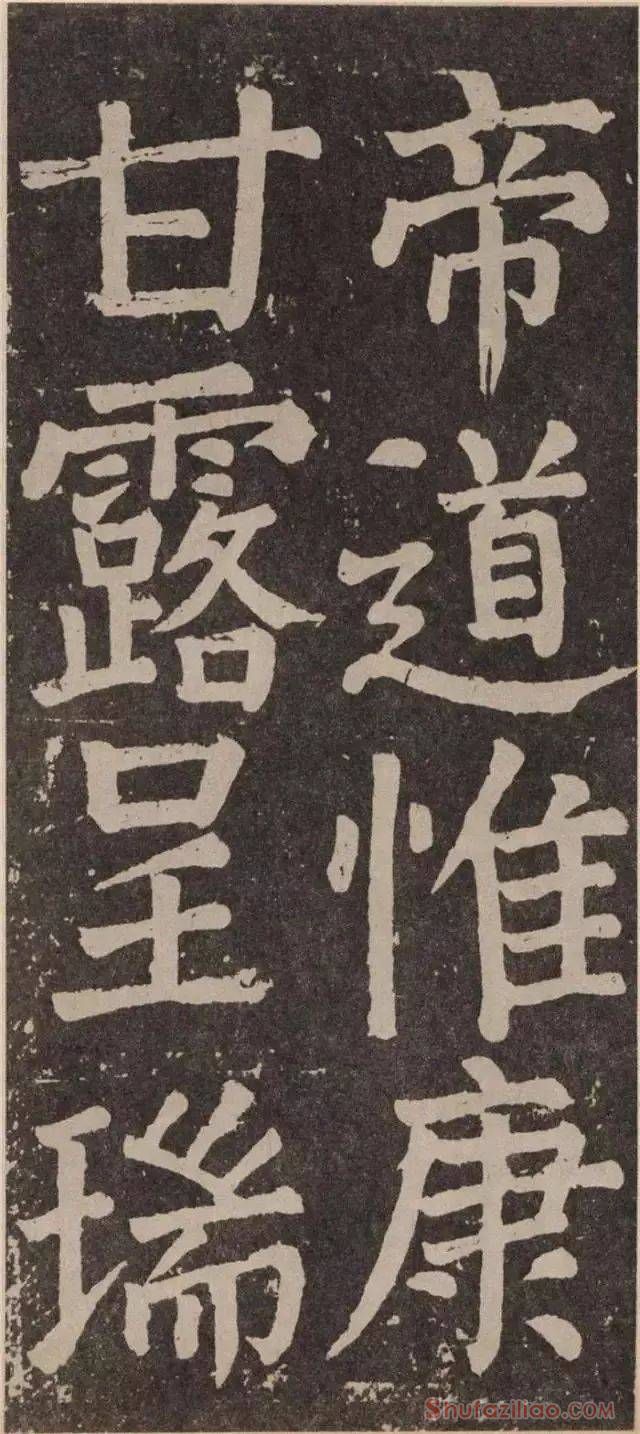 帝道惟康
甘露呈瑞
Shufaziliao.com